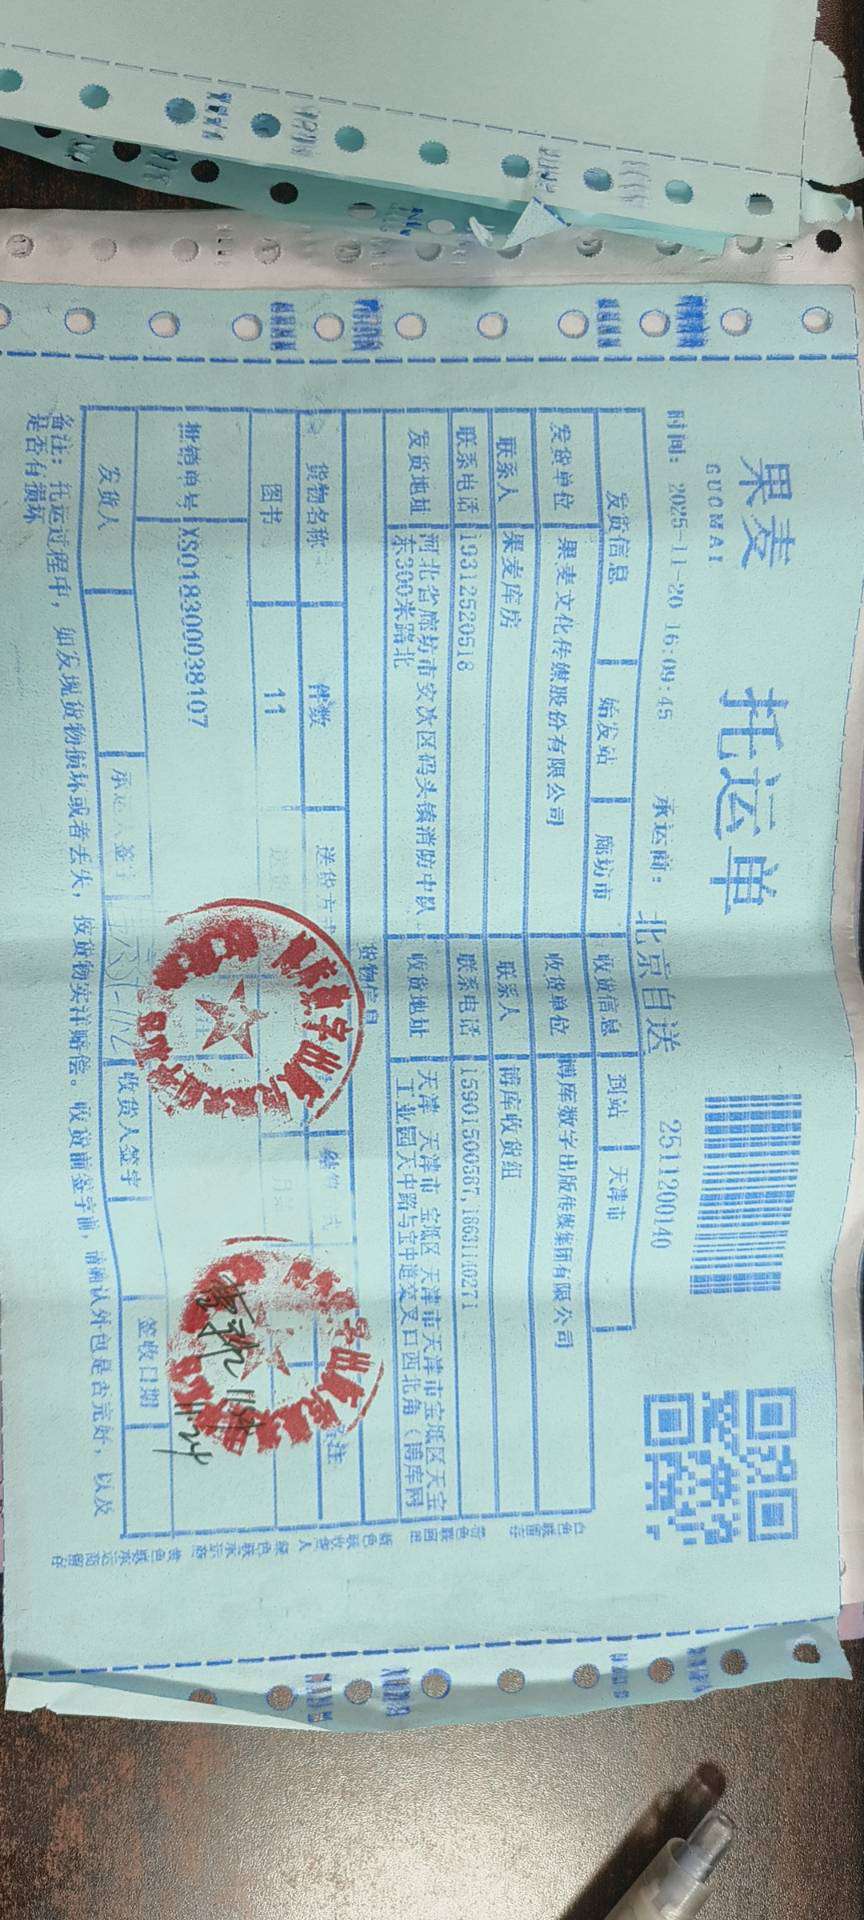 果麦
GUOMAI
托运单
时间: 2025-11-20 16:09:45 承运商: 北京自送 2511200140
发货信息 始发站 廊坊市 收货信息 到站 天津市
发货单位 果麦文化传媒股份有限公司 收货单位 博库数字出版传媒集团有限公司
联系人 果麦库房 联系人 博库收货组
联系电话 19312520518 联系电话
发货地址 河北省廊坊市安次区码头镇消防中队东300米路北 收货地址 天津 天津市 宝坻区 天津市天津市宝坻区天宝工业园天中路与宝中道交叉口西北角（博库网
货物信息
货物名称 件数 送货方式 备注
图书 11
批销单号 XS018300038107
发货人 承运人签字 收货人签字 签收日期
11.24
备注: 托运过程中, 如发现货物损坏或者丢失, 按货物实洋赔偿。收货前签字前, 请确认外包是否完好, 以及
是否有损坏